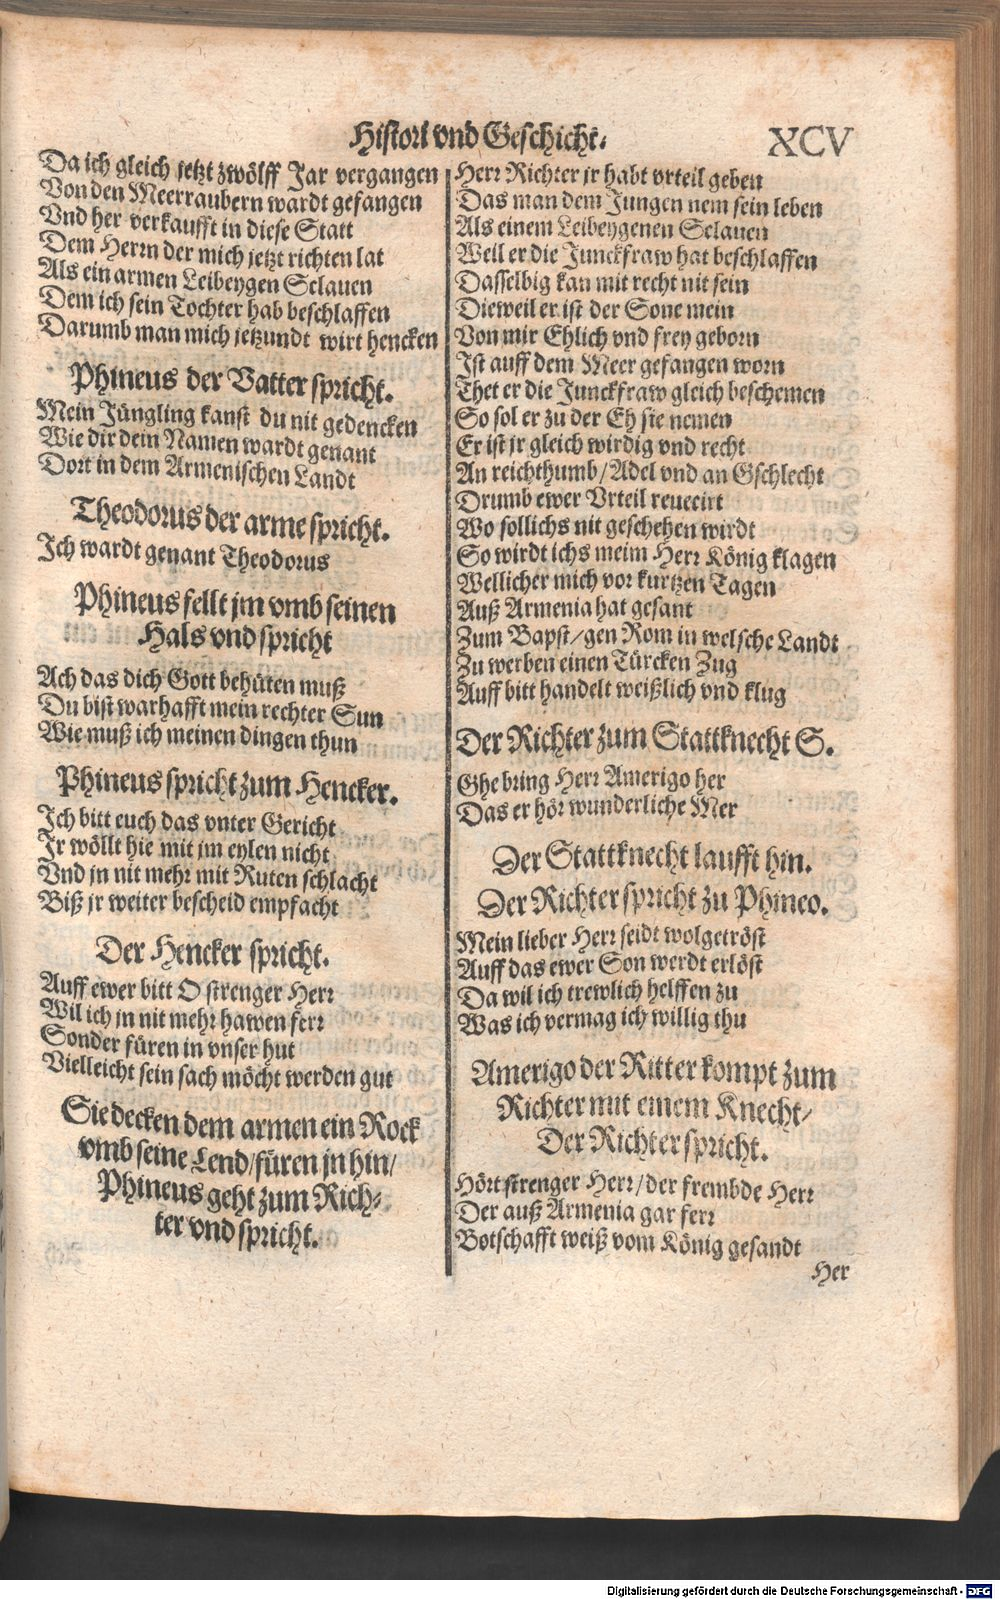 Histori vnd Geschicht.
XCV
Da ich gleich jetzt zwölff Jar vergangen
Von den Meerraubern wardt gefangen
Vnd her verkaufft in diese Statt
Dem Herrn der mich jetzt richten lat
Als ein armen Leibeygen Sclauen
Dem ich sein Tochter hab beschlaffen
Darumb man mich jetzundt wirt hencken
Phineus der Vatter spricht.
Mein Jüngling kanst du nit gedencken
Wie dir dein Namen wardt genant
Dort in dem Armenischen Landt
Theodorus der arme spricht.
Ich wardt genant Theodorus
Phineus fellt jm vmb seinen
Hals vnd spricht
Ach das dich Gott behüten muß
Du bist warhafft mein rechter Sun
Wie muß ich meinen dingen thun
Phineus spricht zum Hencker.
Ich bitt euch das vnter Gericht
Jr wöllt hie mit jm eylen nicht
Vnd jn nit mehr mit Ruten schlacht
Biß jr weiter bescheid empfacht
Der Hencker spricht.
Auff ewer bitt O strenger Herr
Wil ich jn nit mehr hawen ferr
Sonder füren in vnser hut
Vielleicht sein sach möcht werden gut
Sie decken dem armen ein Rock
vmb seine Lend/füren jn hin/
Phineus geht zum Rich-
ter vnd spricht.
Herr Richter jr habt vrteil geben
Das man dem Jungen nem sein leben
Als einem Leibeygenen Sclauen
Weil er die Junckfraw hat beschlaffen
Dasselbig kan mit recht nit sein
Dieweil er ist der Sone mein
Von mir Ehlich vnd frey geborn
Ist auff dem Meer gefangen worn
Thet er die Junckfraw gleich beschemen
So sol er zu der Eh sie nemen
Er ist jr gleich wirdig vnd recht
An reichthumb/Adel vnd an Gschlecht
Drumb ewer Vrteil reuecirt
Wo sollichs nit geschehen wirdt
So wirdt ichs meim Herr König klagen
Wellicher mich vor kurtzen Tagen
Auß Armenia hat gesant
Zum Bapst/gen Rom in welsche Landt
Zu werben einen Türcken Zug
Auff bitt handelt weißlich vnd klug
Der Richter zum Stattknecht S.
Ghe bring Herr Amerigo her
Das er hör wunderliche Mer
Der Stattknecht laufft hin.
Der Richter spricht zu Phineo.
Mein lieber Herr seidt wolgetröst
Auff das ewer Son werdt erlöst
Da wil ich trewlich helffen zu
Was ich vermag ich willig thu
Amerigo der Ritter kompt zum
Richter mit einem Knecht/
Der Richter spricht.
Hört strenger Herr/der frembde Herr
Der auß Armenia gar ferr
Botschafft weiß vom König gesandt
Her
Digitalisierung gefördert durch die Deutsche Forschungsgemeinschaft - DFG